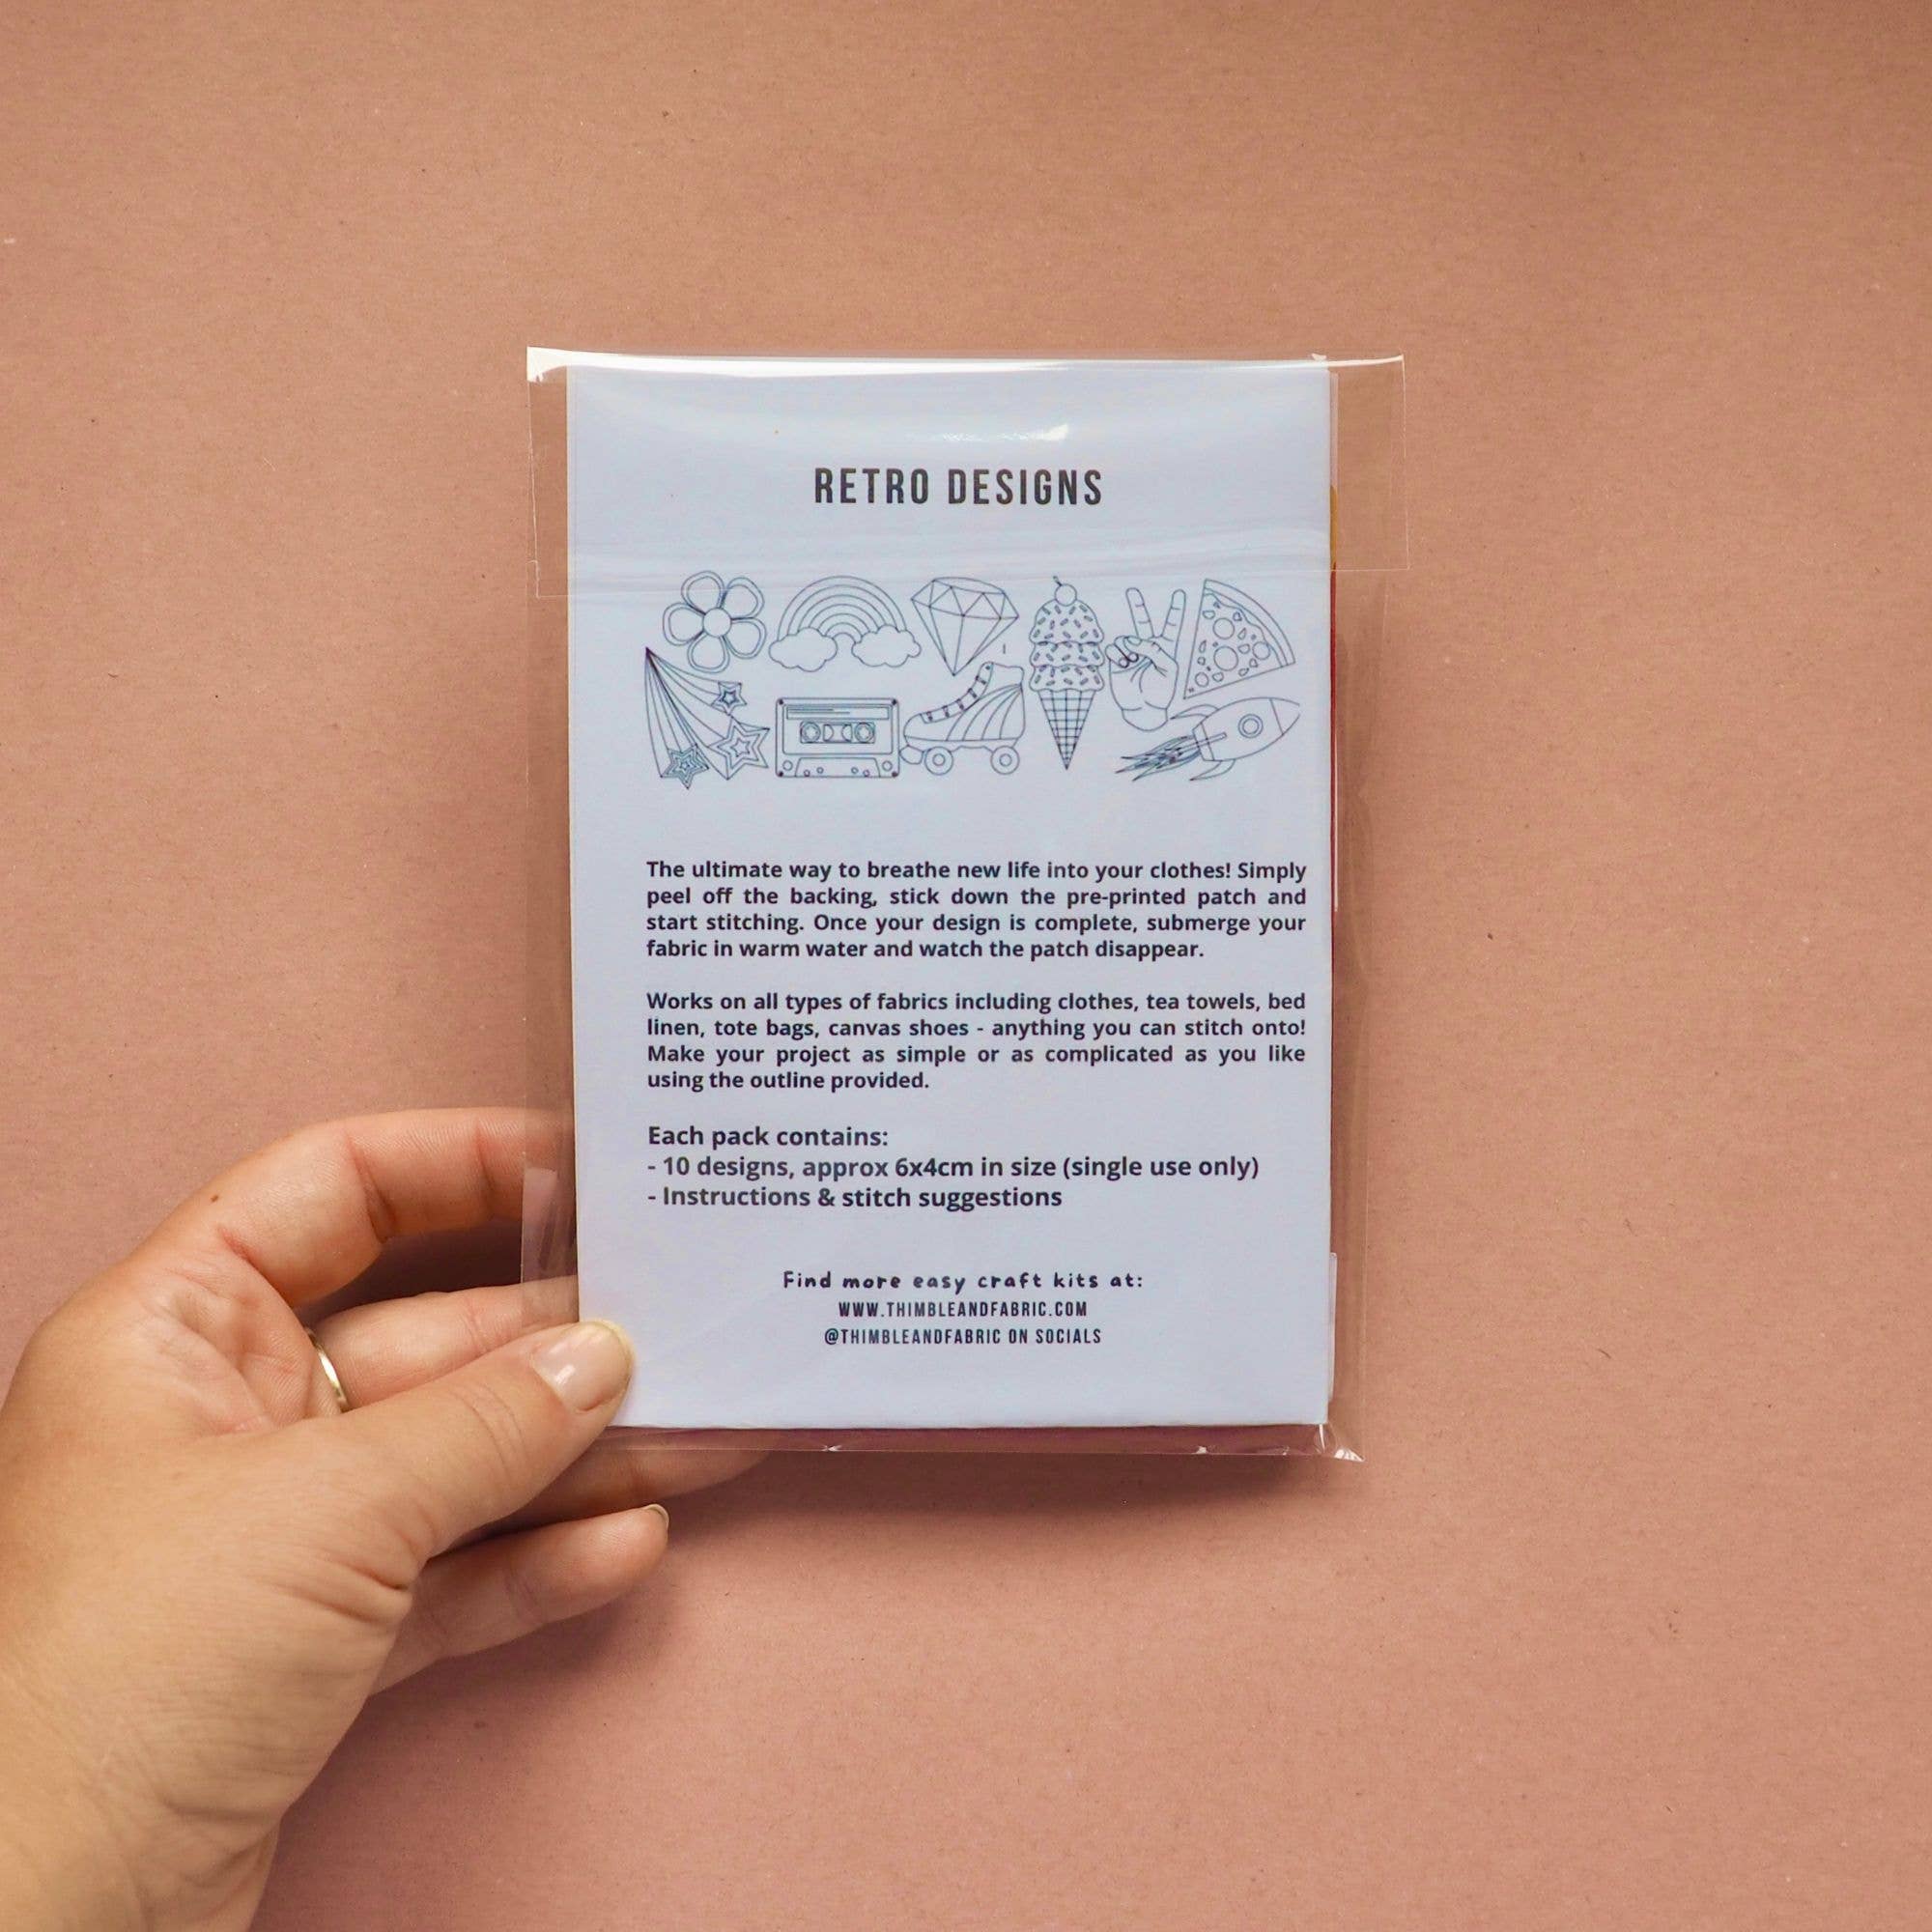 RETRO DESIGNS
The ultimate way to breathe new life into your clothes! Simply
peel off the backing, stick down the pre-printed patch and
start stitching. Once your design is complete, submerge your
fabric in warm water and watch the patch disappear.
Works on all types of fabrics including clothes, tea towels, bed
linen, tote bags, canvas shoes - anything you can stitch onto!
Make your project as simple or as complicated as you like
using the outline provided.
Each pack contains:
- 10 designs, approx 6x4cm in size (single use only)
- Instructions & stitch suggestions
Find more easy craft kits at:
WWW.THIMBLEANDFABRIC.COM
@THIMBLEANDFABRIC ON SOCIALS